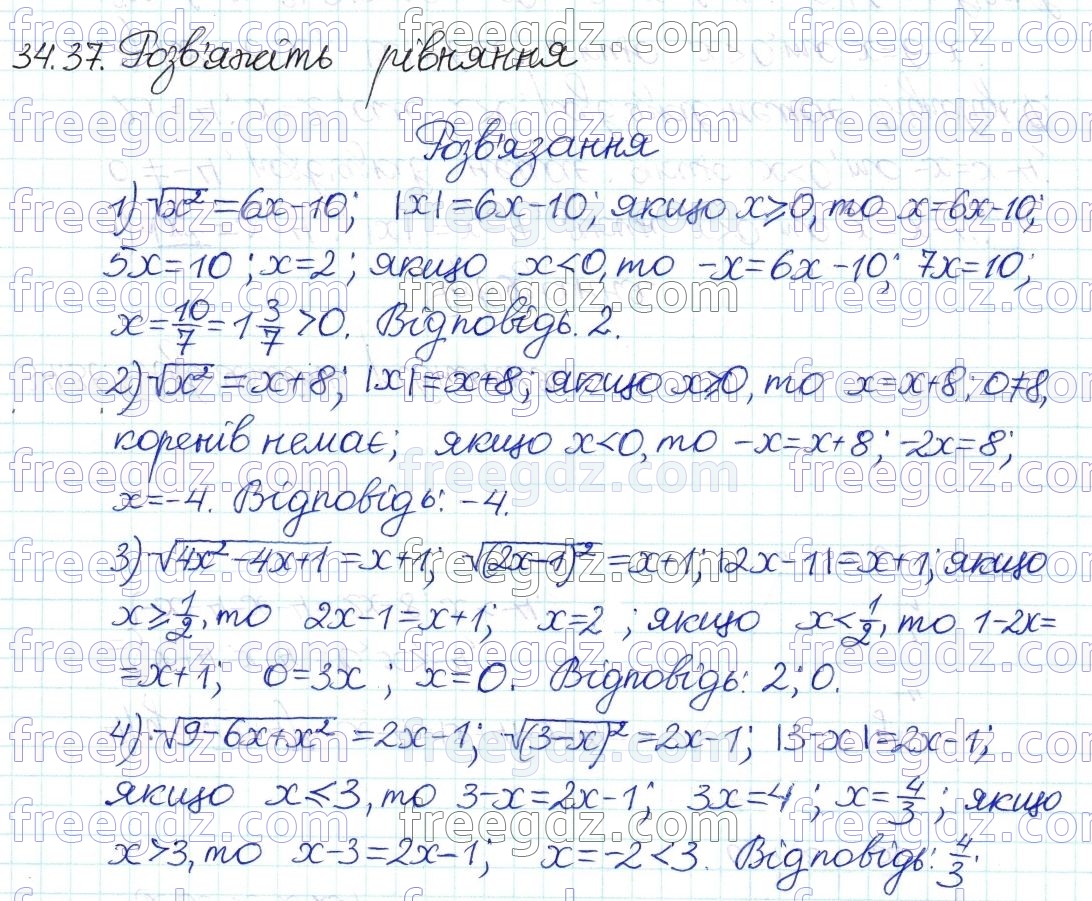 34.37. Розв'яжіть рівняння
Розв'язання
1) √x² = 6x-10; |x| = 6x-10; якщо x⩾0, то x=6x-10;
5x=10; x=2; якщо x<0, то -x=6x-10; 7x=10;
x=10/7=1 3/7 >0. Відповідь. 2.
2) √x² = x+8; |x|=x+8; якщо x⩾0, то x=x+8; 0≠8,
коренів немає; якщо x<0, то -x=x+8; -2x=8;
x=-4. Відповідь: -4.
3) √4x²-4x+1 = x+1; √(2x-1)² = x+1; |2x-1|=x+1; якщо
x⩾1/2, то 2x-1=x+1; x=2; якщо x<1/2, то 1-2x=
=x+1; 0=3x; x=0. Відповідь: 2; 0.
4) √9-6x+x² = 2x-1; √(3-x)² = 2x-1; |3-x|=2x-1;
якщо x⩽3, то 3-x=2x-1; 3x=4; x=4/3; якщо
x>3, то x-3=2x-1; x=-2<3. Відповідь: 4/3.
freegdz.com